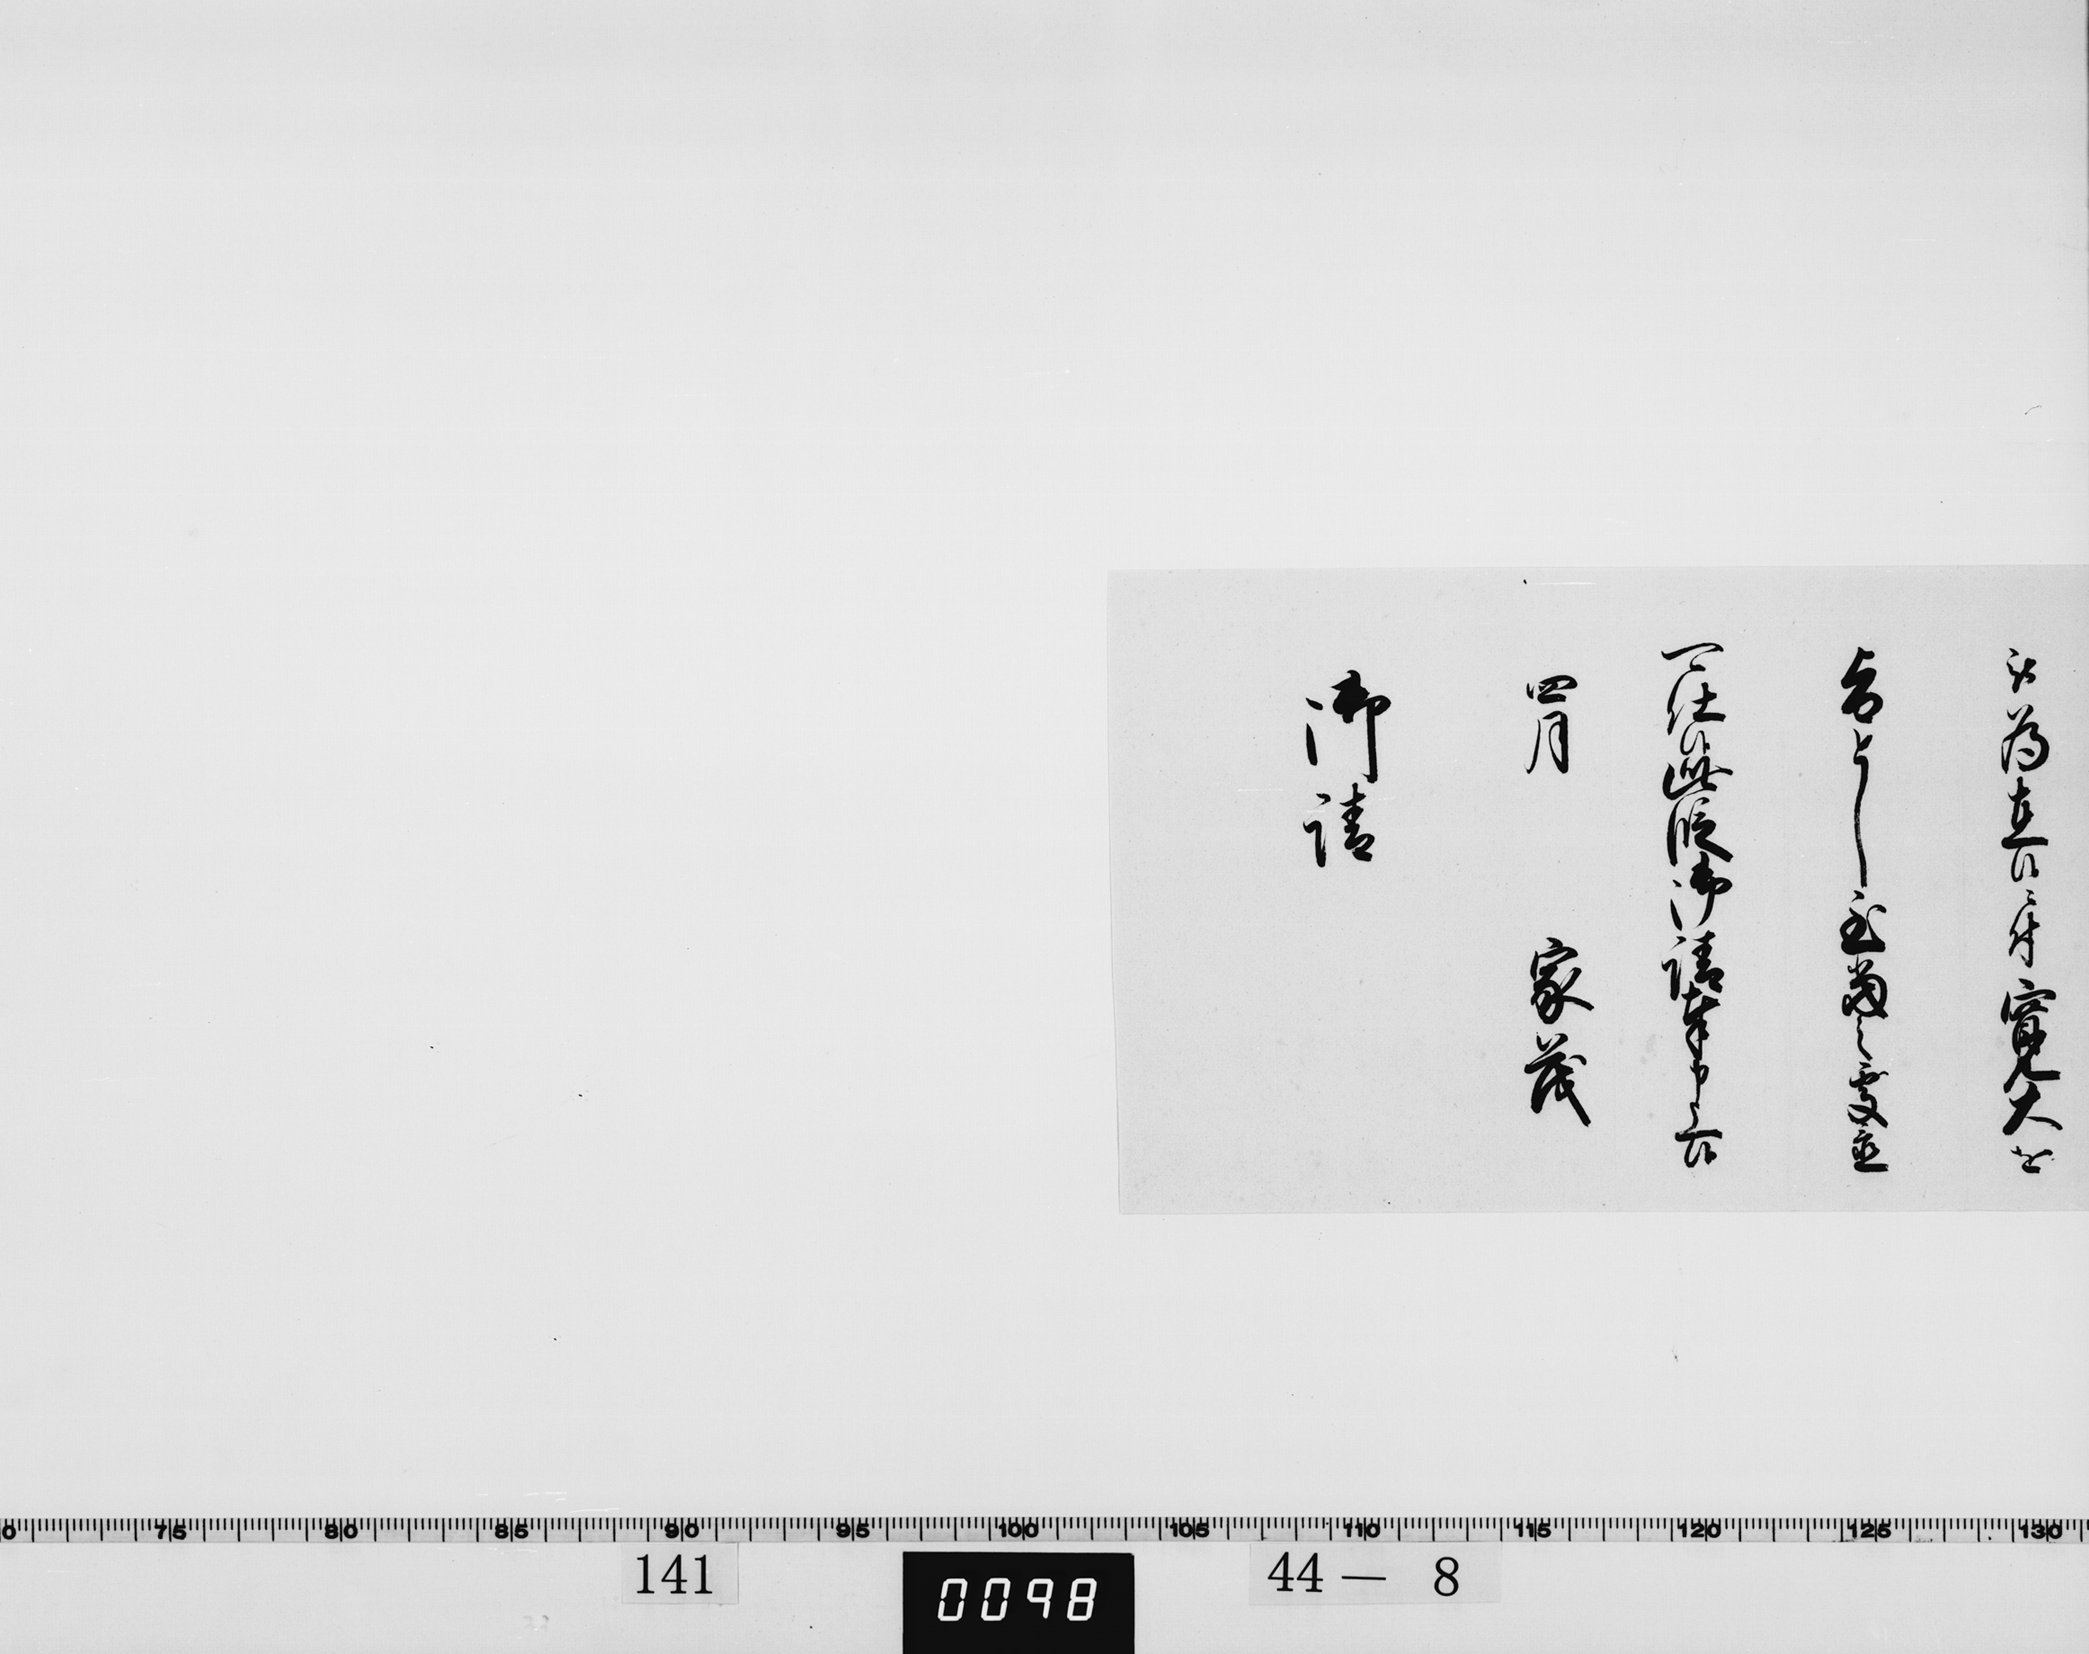 被為在候ニ付寛大を
旨とし至當之處置
可仕候此段御請奉申上候
四月　家茂
御請
0 75 80 85 90 95 100 105 110 115 120 125 130
141 0098 44 — 8